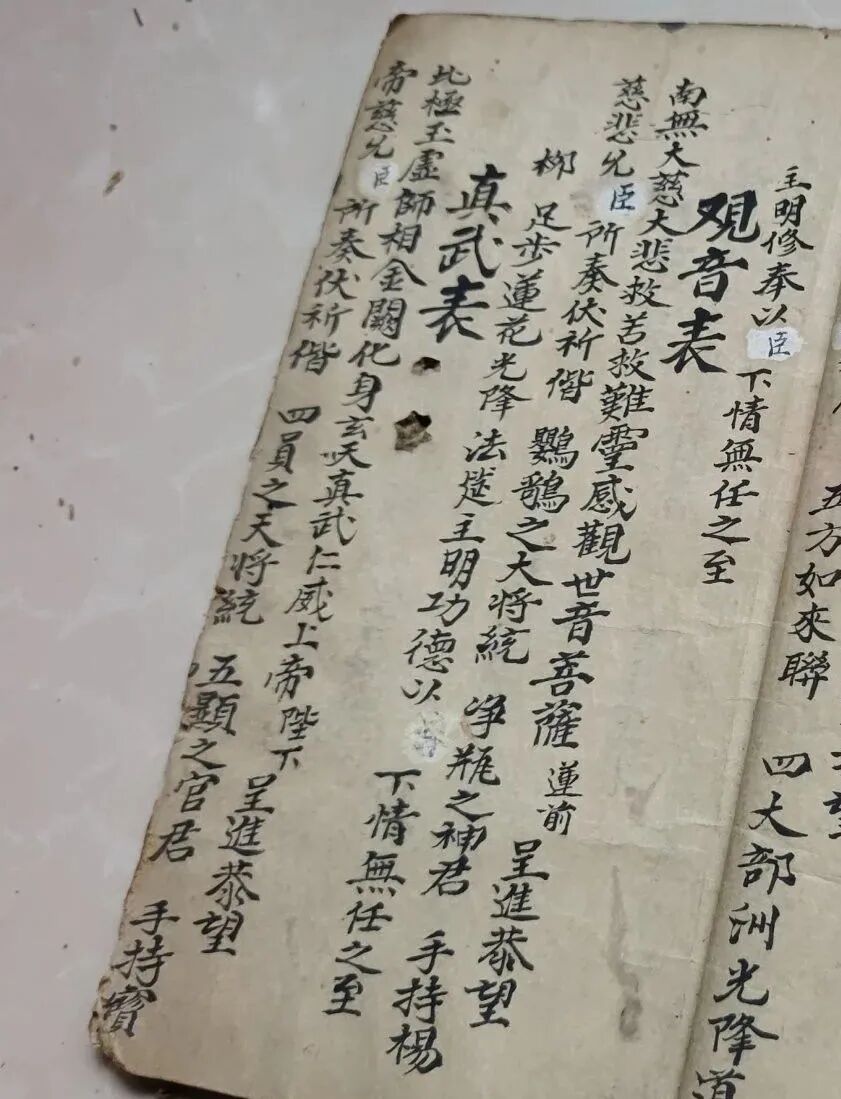 五方如來聯
四大部洲光降道
主明修奉以臣 下情無任之至
覌音表
南無大慈大悲救苦救難靈感觀世音菩薩 蓮前 呈進恭望
慈悲允臣所奏伏祈偕 鸚鵡之大将統 净瓶之神君 手持楊
柳 足步蓮花光降 法筵主明功德以 下情無任之至
真武表
北極玉虛師相金闕化身玄天真武仁威上帝陛下 呈進恭望
帝慈允臣所奏伏祈偕 四員之天将統 五顯之官君 手持寳